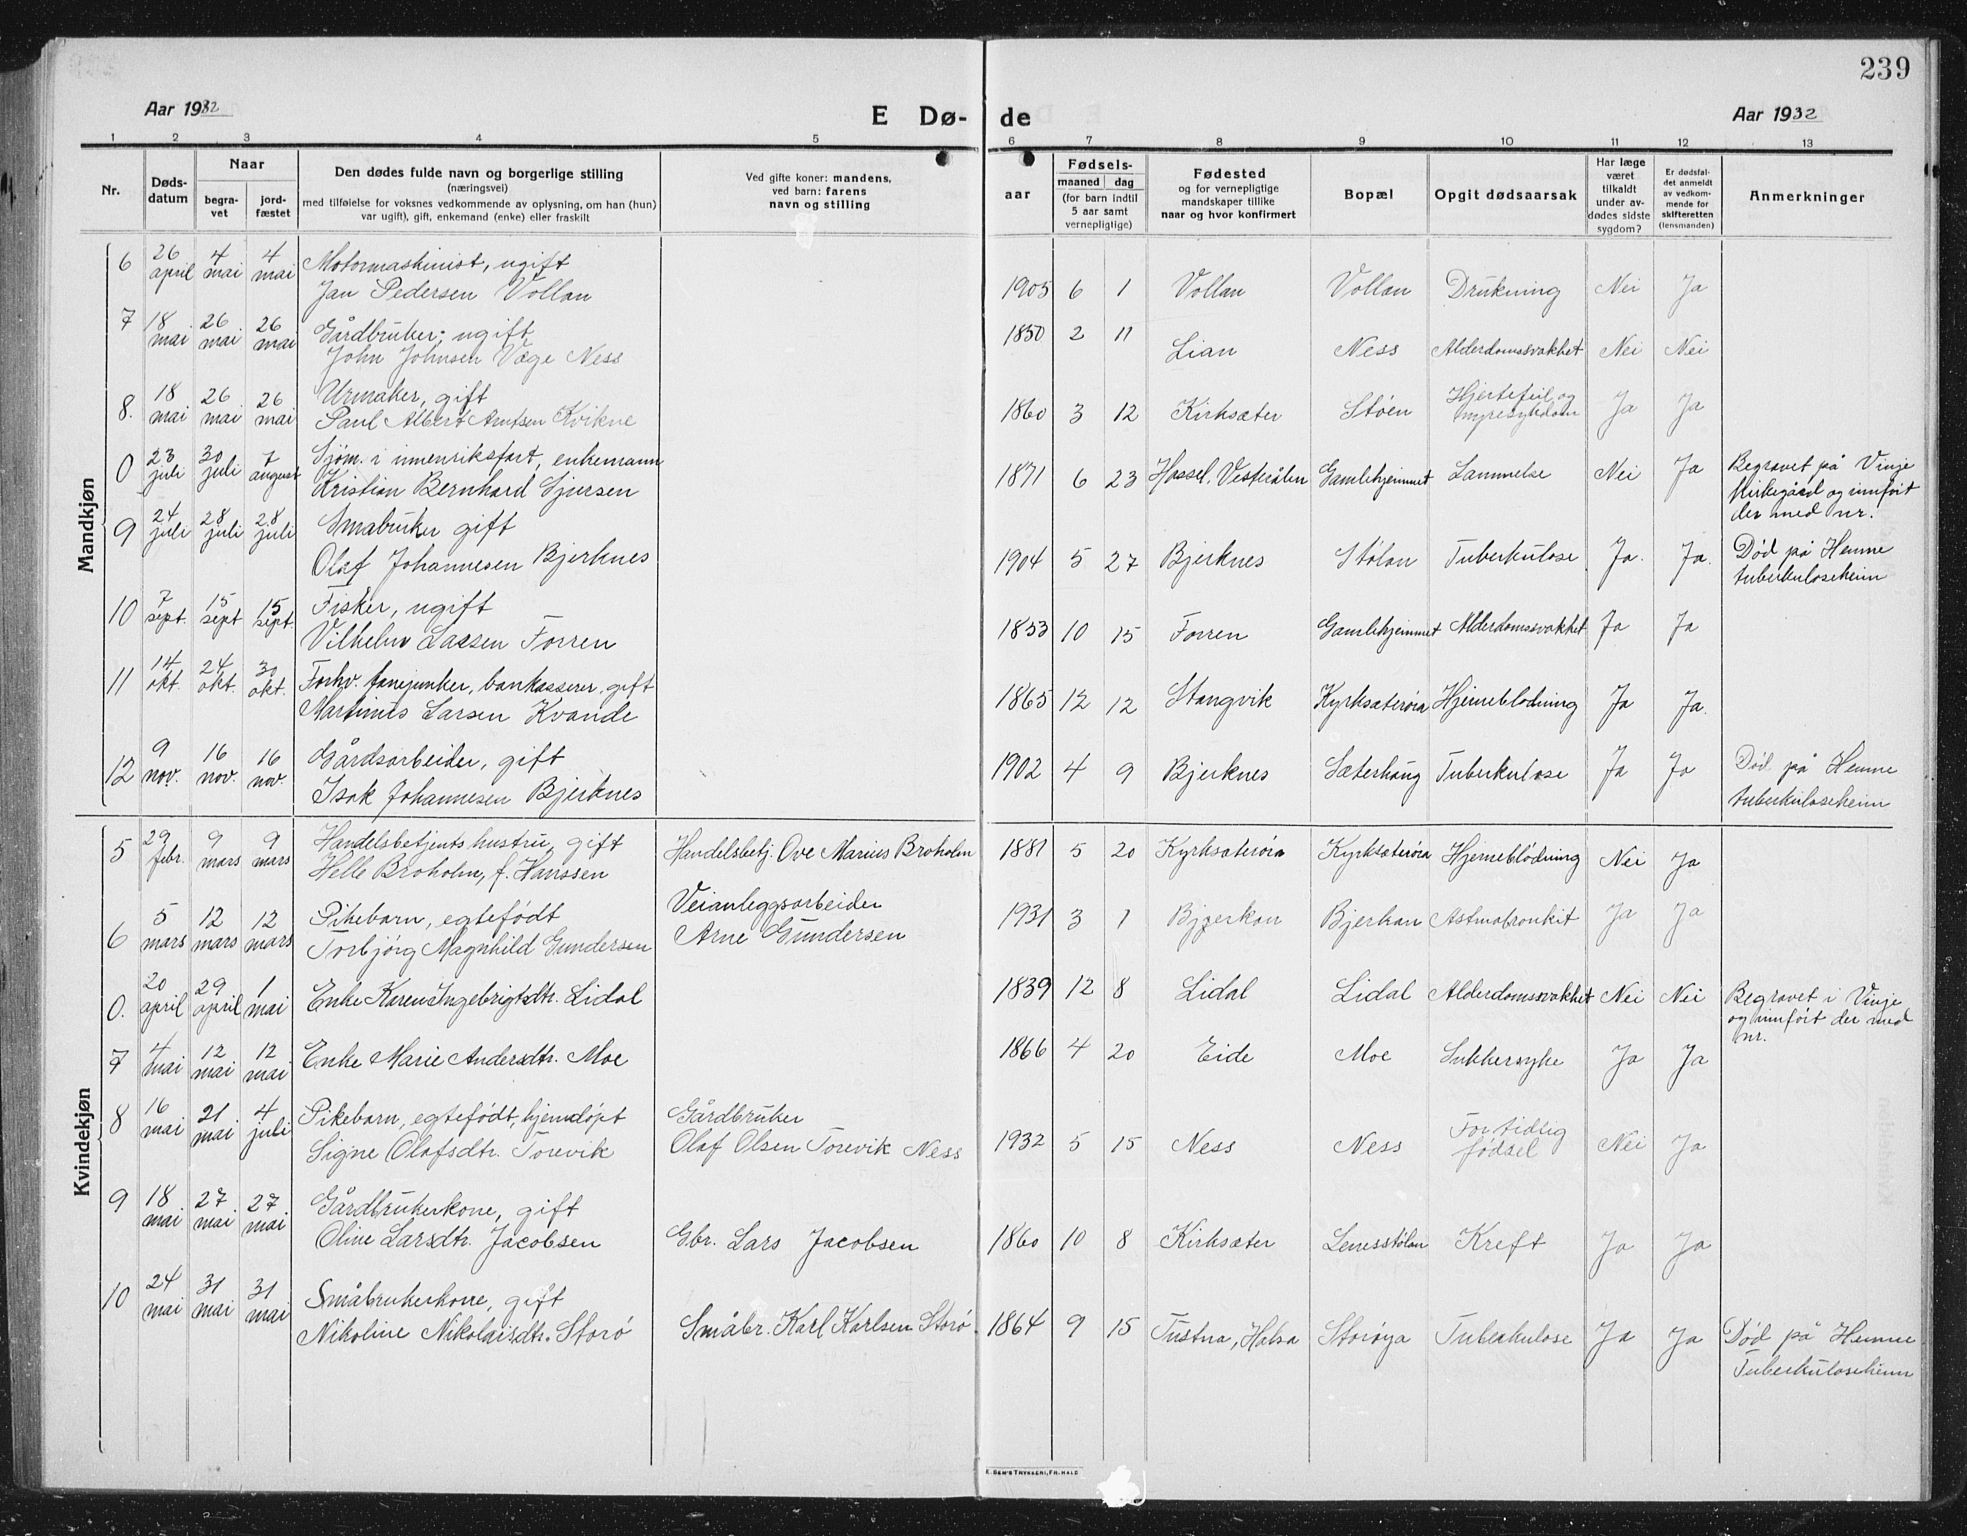 239
Aar 1932
E Dø-
de
Aar 1932
1 2 3 4 5 6 7 8 9 10 11 12 13
Nr.
Døds-
datum
Naar
begra-
vet
jord-
fæstet
Den dødes fulde navn og borgerlige stilling
(næringsvei)
med tilføielse for voksnes vedkommende av oplysning, om han (hun)
var ugift), gift, enkemand (enke) eller fraskilt
Ved gifte koner: mandens,
ved barn: farens
navn og stilling
Fødsels-
aar
maaned dag
(for barn indtil
5 aar samt
vernepligtige)
Fødested
og for vernepligtige
mandskaper tillike
naar og hvor konfirmert
Bopæl
Opgit dødsaarsak
Har læge
været
tilkaldt
under av-
dødes sidste
sygdom?
Er dødsfal-
det anmeldt
av vedkom-
mende for
skifteretten
(lensmanden)
Anmerkninger
Mandkjøn
6 26 april 4 mai 4 mai Motormaskinist, ugift
Jan Pedersen Vollan 1905 6 1 Vollan Vollan Drukning Nei Ja
7 18 mai 26 mai 26 mai Gårdbruker, ugift
John Johnsen Væge Ness 1850 2 11 Lian Ness Alderdomssvakhet Nei Nei
8. 18 mai 26 mai 26 mai Urmaker, gift
Paul Albert Arntsen Kvikne 1860 3 12 Kirksæter Støen Hjertefeil og
nyresykdom Ja Ja
0 23 juli 30 juli 7 august Sjøm. i innenriksfart, enkemann
Kristian Bernhard Sjursen 1871 6 23 Hassel, Vesterålen Gamlehjemmet Lammelse Nei Ja Begravet på Vinje
kirkegård og innført
der med nr.
9 24 juli 28 juli 28 juli Småbruker gift
Olaf Johannesen Bjerknes 1904 5 27 Bjerknes Stølan Tuberkulose Ja. Ja. Død på Hemne
tuberkuloseheim
10 7 sept. 15 sept 15 sept. Fisker, ugift
Vilhelm Lassen Forren 1853 10 15 Forren Gamlehjemmet Alderdomssvakhet Ja Ja
11 14 okt. 24 okt. 30 okt. Forhv. fanejunker, bankasserer, gift
Martinus Larsen Kvande 1865 12 12 Stangvik Kyrksæterøra Hjerneblødning Ja Ja.
12 9 nov. 16 nov. 16 nov. Gårdsarbeider, gift
Isak Johannesen Bjerknes 1902 4 9 Bjerknes Sæterhaug Tuberkulose Ja Ja Død på Hemne
tuberkuloseheim
Kvindekjøn
5 29 febr. 9 mars 9 mars Handelsbetjents hustru, gift
Helle Broholm, f. Hanssen Handelsbetj. Ove Marius Broholm 1881 5 20 Kyrksæterøra Kyrksæterøra Hjerneblødning Nei Ja
6 5 mars 12 mars 12 mars Pikebarn, egtefødt
Torbjørg Magnhild Gundersen Veianleggsarbeider
Arne Gundersen 1931 3 1 Bjerkan Bjerkan Astmabronkit Ja Ja
0. 20 april 29 april 1 mai Enke Karen Ingebrigtsdtr. Lidal 1839 12 8 Lidal Lidal Alderdomssvakhet Nei Nei Begravet i Vinje
og innført der med
nr.
7 4 mai 12 mai 12 mai Enke Marie Andersdtr. Moe 1866 4 20 Eide Moe Sukkersyke Ja Ja
8 16 mai 21 mai 4 juli Pikebarn, egtefødt, hjemdøpt
Signe Olafsdtr. Torevik Gårdbruker
Olaf Olsen Torevik Ness 1932 5 15 Ness Ness For tidlig
fødsel Nei Ja
9 18 mai 27 mai 27 mai Gårdbrukerkone, gift
Oline Larsdtr. Jacobsen Gbr. Lars Jacobsen 1860 10 8 Kirksæter Lenesstølan Kreft Ja Ja
10 24 mai 31 mai 31 mai Småbrukerkone, gift
Nikoline Nikolaisdtr. Storø Småbr. Karl Karlsen Storø 1864 9 15 Tustna, Halsa Storøya Tuberkulose Ja Ja Død på Hemne
Tuberkuloseheim
E. SEM'S TRYKKERI, FR.HALD